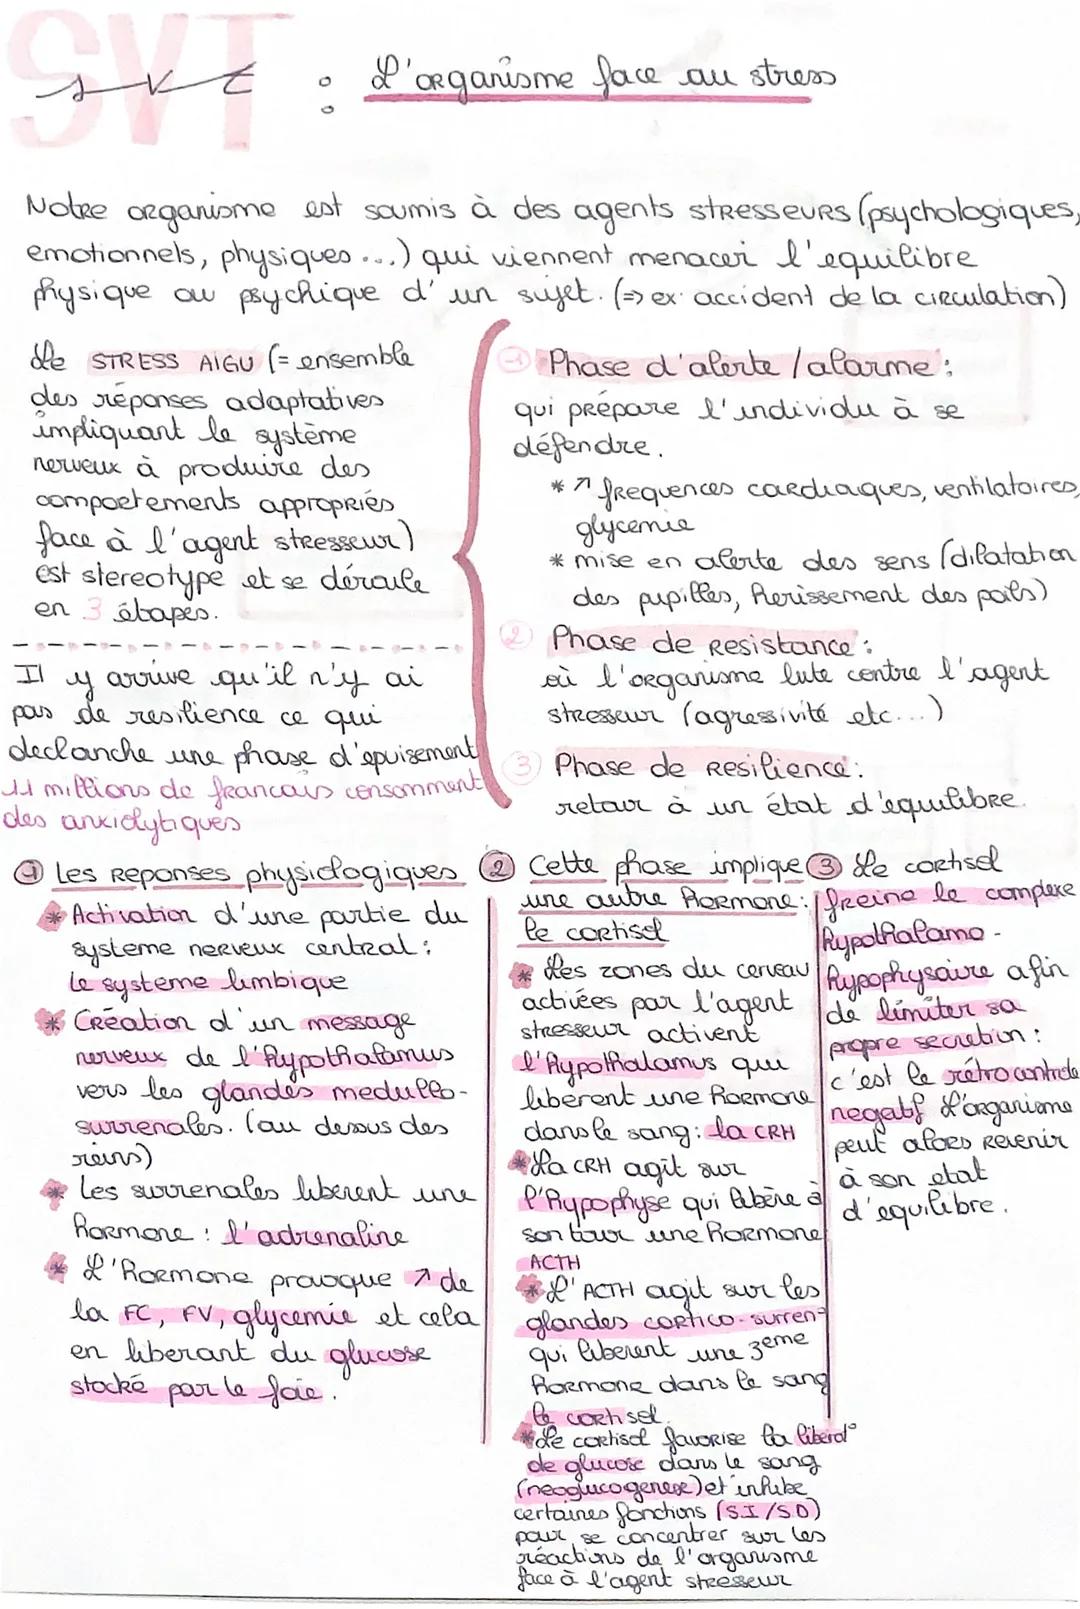 SVT
svt : L'organisme face au stress
Notre organisme est soumis à des agents stresseurs (psychologiques,
emotionnels, physiques ...) qui viennent menacer l'equilibre
physique ou psychique d'un sujet. (=> ex: accident de la circulation)
Le STRESS AIGU (= ensemble
des réponses adaptatives
impliquant le système
nerveux à produire des
comportements appropriés
face à l'agent stresseur)
est stereotype et se déroule
en 3 étapes.
Il y arrive qu'il n'y ai
pas de resilience ce qui
declanche une phase d'epuisement
11 millions de francais consomment
des anxiolytiques
1 Phase d'alerte / alarme :
qui prépare l'individu à se
défendre.
* ↗ frequences cardiaques, ventilatoires,
glycemie
* mise en alerte des sens (dilatation
des pupilles, herissement des poils)
2 Phase de resistance :
où l'organisme lute contre l'agent
stresseur (agressivité etc...)
3 Phase de Resilience :
retour à un état d'equilibre.
1 Les reponses physiologiques
* Activation d'une partie du
systeme nerveux central :
le systeme limbique
* Création d'un message
nerveux de l'hypothalamus
vers les glandes medullo-
surrenales. (au dessus des
reins)
* Les surrenales liberent une
hormone : l'adrenaline
* L'hormone provoque ↗ de
la FC, FV, glycemie et cela
en liberant du glucose
stocké par le foie.
2 Cette phase implique
une autre hormone :
le cortisol
* Les zones du cerveau
activées par l'agent
stresseur activent
l'hypothalamus qui
libèrent une hormone
dans le sang : la CRH
* La CRH agit sur
l'hypophyse qui libère à
son tour une hormone
ACTH
* L'ACTH agit sur les
glandes cortico-surren
qui liberent une 3eme
hormone dans le sang
le cortisol.
* Le cortisol favorise la liberat°
de glucose dans le sang
(neoglucogenese) et inhibe
certaines fonctions (S.I / S.D)
pour se concentrer sur les
réactions de l'organisme
face à l'agent stresseur
3 Le cortisol
freine le complexe
hypothalamo-
hypophysaire afin
de limiter sa
propre secretion :
c'est le rétrocontrole
negatif L'organisme
peut alors revenir
à son etat
d'equilibre.